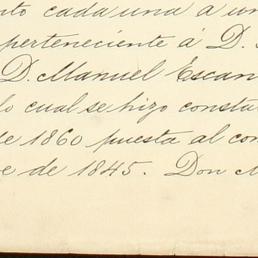 nto cada una a un
perteneciente á D.
D. Manuel Escan
lo cual se hizo consta
de 1860 puesta al con
e de 1845. Don M